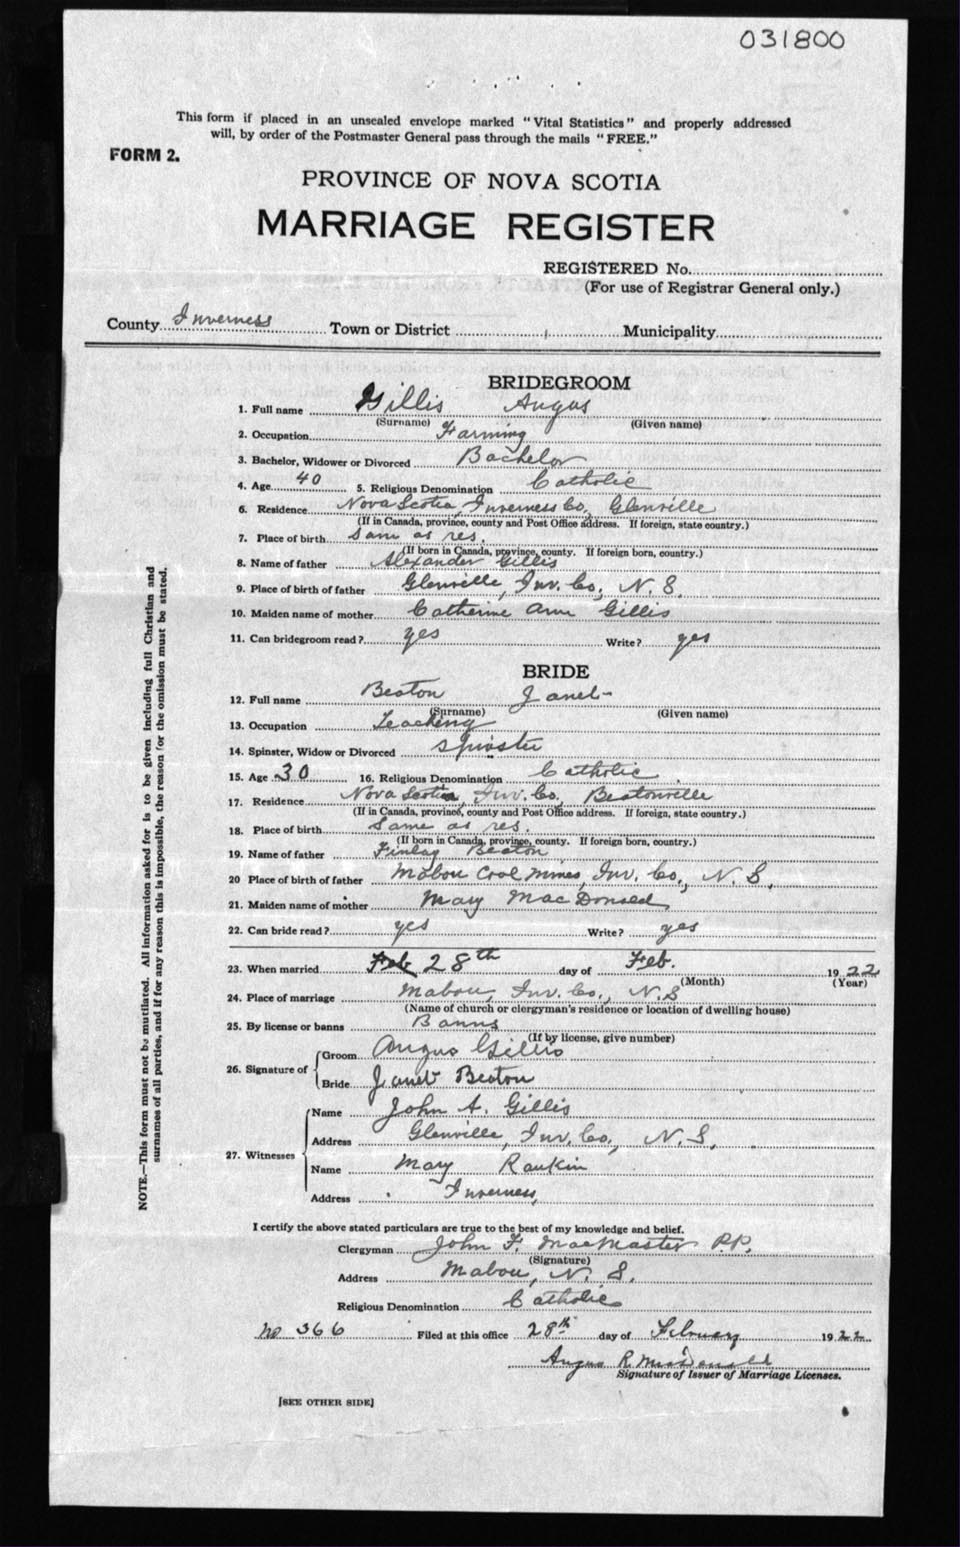 031800
This form if placed in an unsealed envelope marked "Vital Statistics" and properly addressed
will, by order of the Postmaster General pass through the mails "FREE."
FORM 2.
PROVINCE OF NOVA SCOTIA
MARRIAGE REGISTER
REGISTERED No.
(For use of Registrar General only.)
County Inverness Town or District Municipality
BRIDEGROOM
1. Full name Gillis Angus
(Surname) (Given name)
2. Occupation Farming
3. Bachelor, Widower or Divorced Bachelor
4. Age 40 5. Religious Denomination Catholic
6. Residence Nova Scotia, Inverness Co., Glenville
(If in Canada, province, county and Post Office address. If foreign, state country.)
7. Place of birth Same as res.
(If born in Canada, province, county. If foreign born, country.)
8. Name of father Alexander Gillis
9. Place of birth of father Glenville, Inv. Co., N. S.
10. Maiden name of mother Catherine Ann Gillis
11. Can bridegroom read? yes Write? yes
BRIDE
12. Full name Beaton Janet
(Surname) (Given name)
13. Occupation Teaching
14. Spinster, Widow or Divorced Spinster
15. Age 30 16. Religious Denomination Catholic
17. Residence Nova Scotia, Inv. Co., Beatonville
(If in Canada, province, county and Post Office address. If foreign, state country.)
18. Place of birth Same as res.
(If born in Canada, province, county. If foreign born, country.)
19. Name of father Finlay Beaton
20 Place of birth of father Mabou Coal Mines, Inv. Co., N. S.
21. Maiden name of mother Mary MacDonald
22. Can bride read? yes Write? yes
23. When married Feb 28th day of Feb. 1922
(Month) (Year)
24. Place of marriage Mabou, Inv. Co., N. S
(Name of church or clergyman's residence or location of dwelling house)
25. By license or banns Banns
(If by license, give number)
26. Signature of
Groom Angus Gillis
Bride Janet Beaton
27. Witnesses
Name John A. Gillis
Address Glenville, Inv. Co., N. S.
Name Mary Rankin
Address Inverness,
I certify the above stated particulars are true to the best of my knowledge and belief.
Clergyman John F. MacMaster P.P.
(Signature)
Address Mabou, N. S.
Religious Denomination Catholic
No 366 Filed at this office 28th day of February 1922
Angus R. McDonald
Signature of Issuer of Marriage Licenses.
[SEE OTHER SIDE]
NOTE.—This form must not be mutilated. All information asked for is to be given including full Christian and
surnames of all parties, and if for any reason this is impossible, the reason for the omission must be stated.